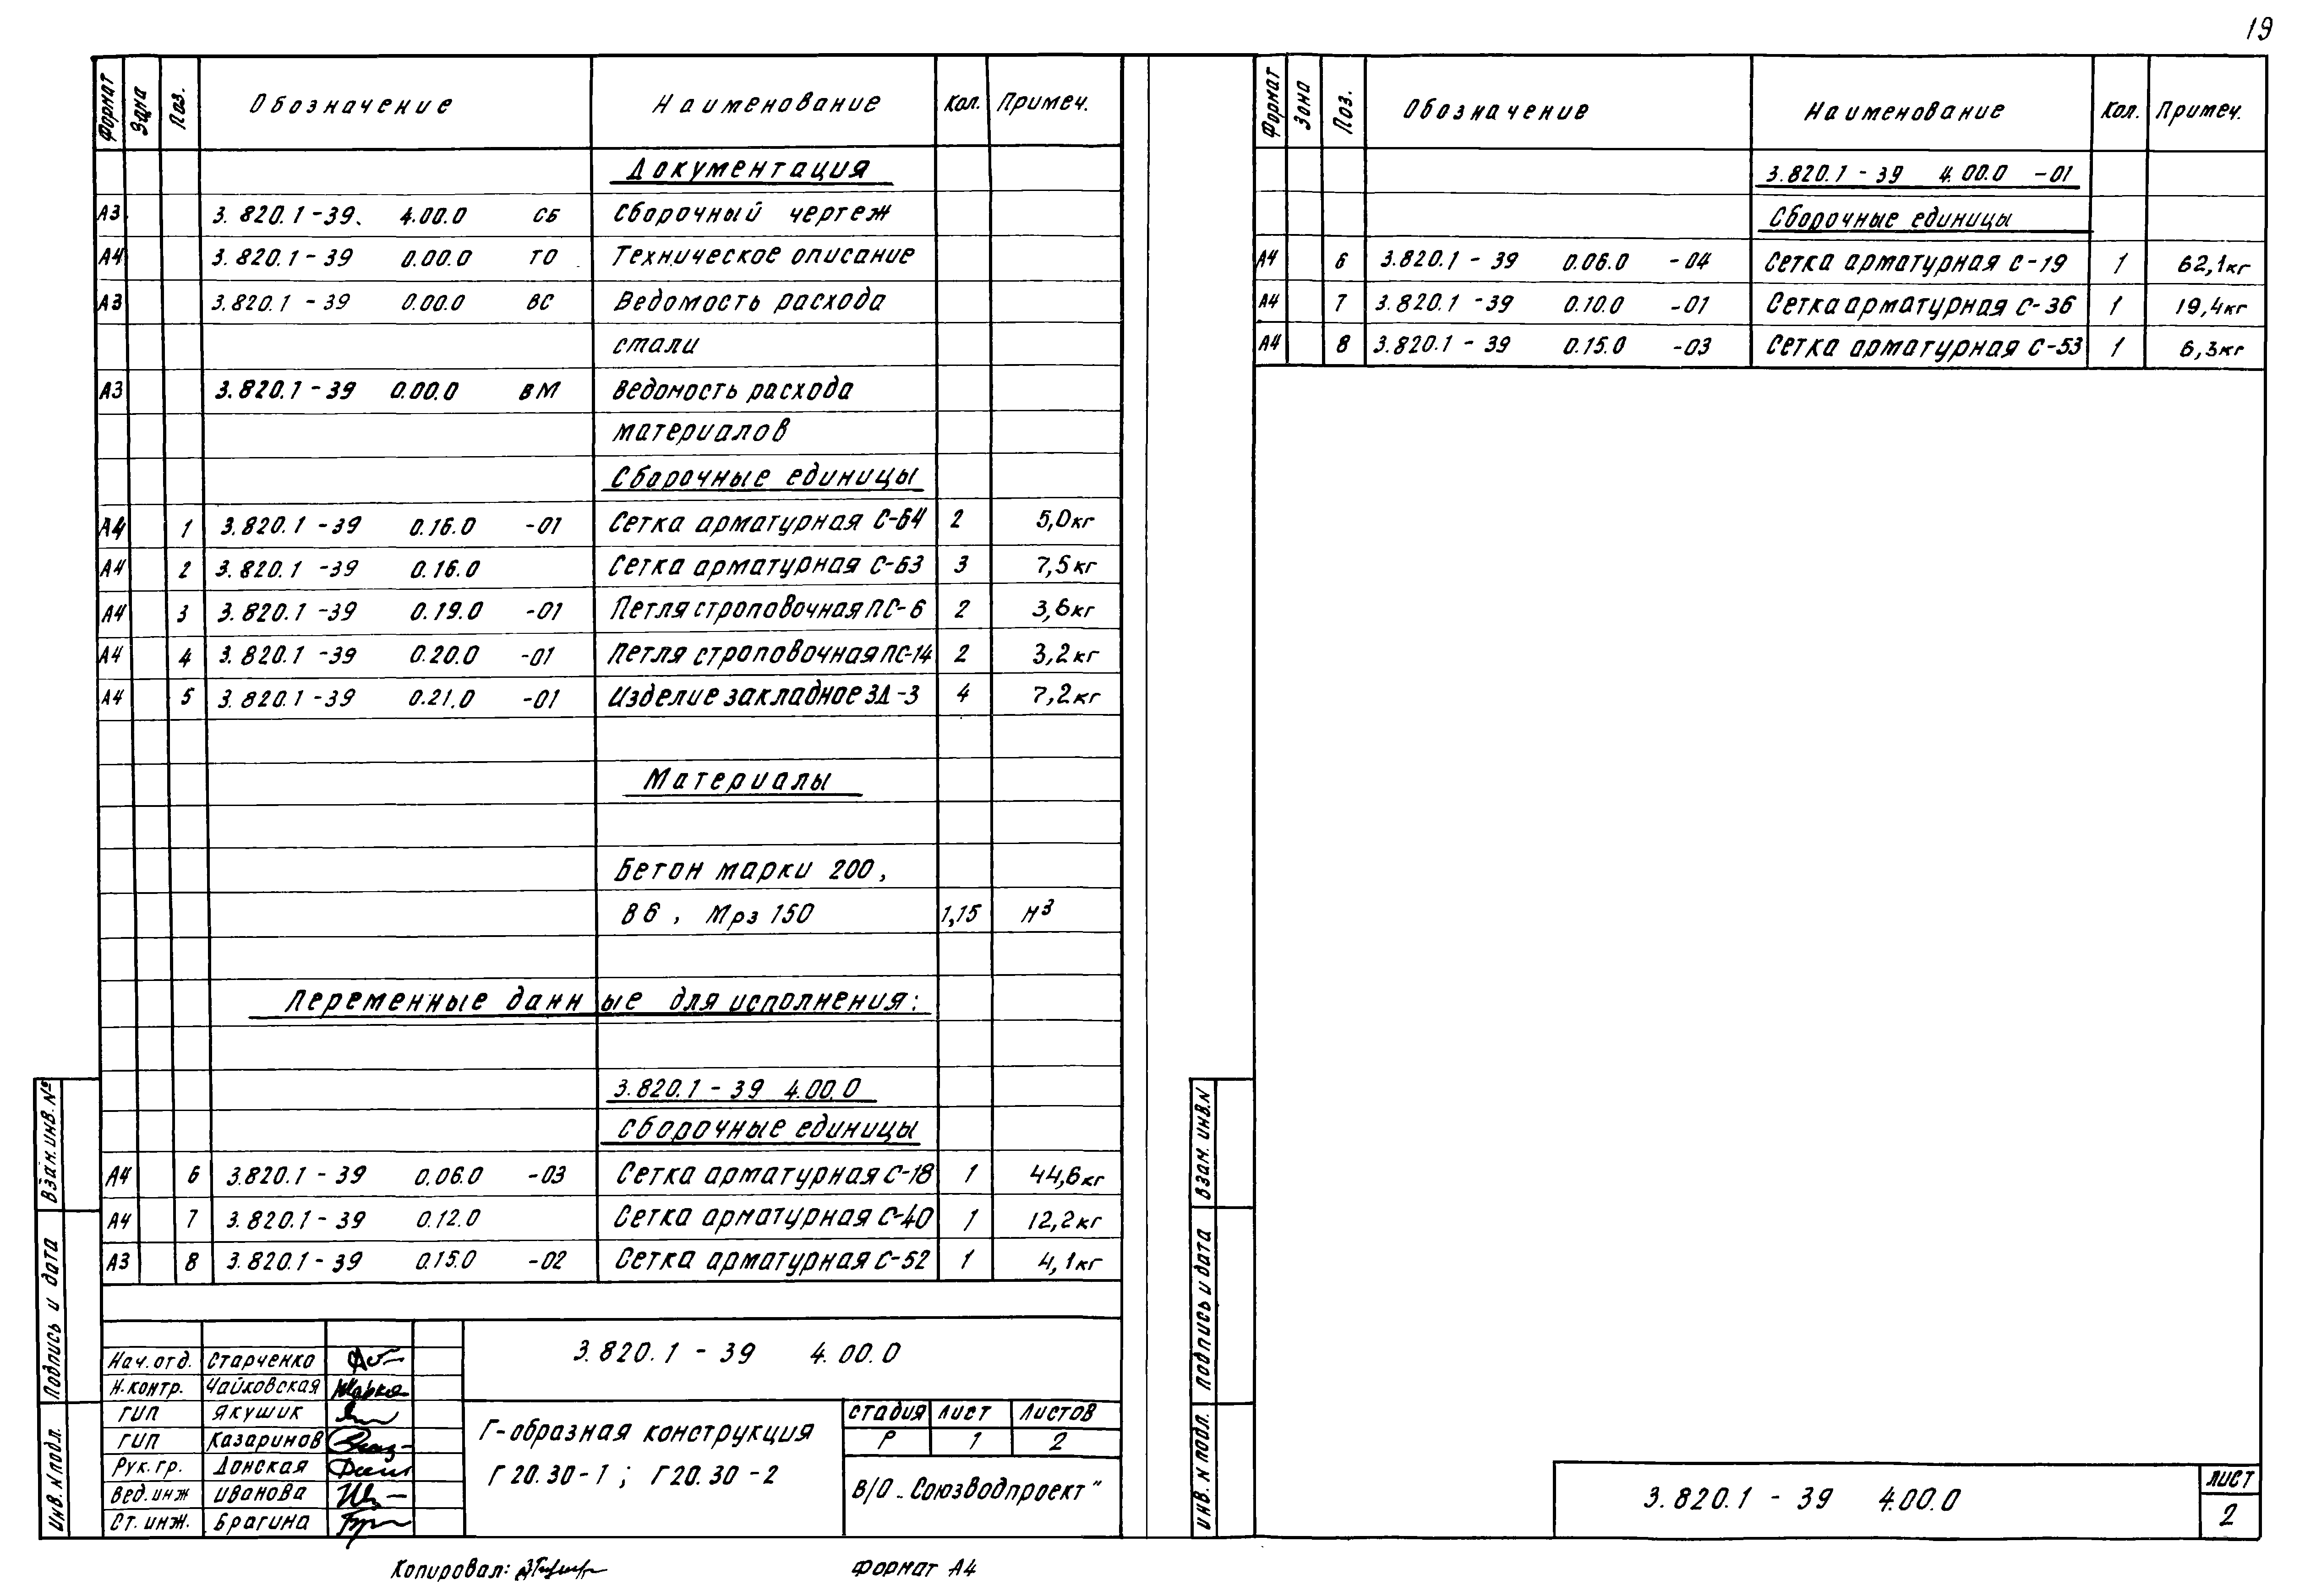 19
Формат Зона Поз. Обозначение Наименование Кол. Примеч.
Документация
А3 3.820.1-39. 4.00.0 СБ Сборочный чертеж
А4 3.820.1-39 0.00.0 ТО Техническое описание
А3 3.820.1-39 0.00.0 ВС Ведомость расхода
стали
А3 3.820.1-39 0.00.0 ВМ Ведомость расхода
материалов
Сборочные единицы
А4 1 3.820.1-39 0.16.0 -01 Сетка арматурная С-64 2 5,0кг
А4 2 3.820.1-39 0.16.0 Сетка арматурная С-63 3 7,5кг
А4 3 3.820.1-39 0.19.0 -01 Петля строповочная ПС-6 2 3,6кг
А4 4 3.820.1-39 0.20.0 -01 Петля строповочная ПС-14 2 3,2кг
А4 5 3.820.1-39 0.21.0 -01 Изделие закладное ЗД-3 4 7,2кг
Материалы
Бетон марки 200,
В6, Мрз 150 1,15 м³
Переменные данные для исполнения:
3.820.1-39 4.00.0
Сборочные единицы
А4 6 3.820.1-39 0.06.0 -03 Сетка арматурная С-18 1 44,6кг
А4 7 3.820.1-39 0.12.0 Сетка арматурная С-40 1 12,2кг
А3 8 3.820.1-39 0.15.0 -02 Сетка арматурная С-52 1 4,1кг
Взам.инв.№
Подпись и дата
Инв. N подл.
3.820.1-39 4.00.0
Нач.отд. Старченко
Н.контр. Чайковская
ГИП Якушик
ГИП Казаринов
Рук.гр. Донская
Вед.инж Иванова
Ст.инж. Брагина
Г-образная конструкция
Г20.30-1; Г20.30-2
стадия лист листов
Р 1 2
В/О „Союзводпроект"
Копировал:
Формат А4
Формат Зона Поз. Обозначение Наименование Кол. Примеч.
3.820.1-39 4.00.0 -01
Сборочные единицы
А4 6 3.820.1-39 0.06.0 -04 Сетка арматурная С-19 1 62,1кг
А4 7 3.820.1-39 0.10.0 -01 Сетка арматурная С-36 1 19,4кг
А4 8 3.820.1-39 0.15.0 -03 Сетка арматурная С-53 1 6,3кг
Взам. инв.N
Подпись и дата
Инв. N подл.
3.820.1-39 4.00.0
лист
2